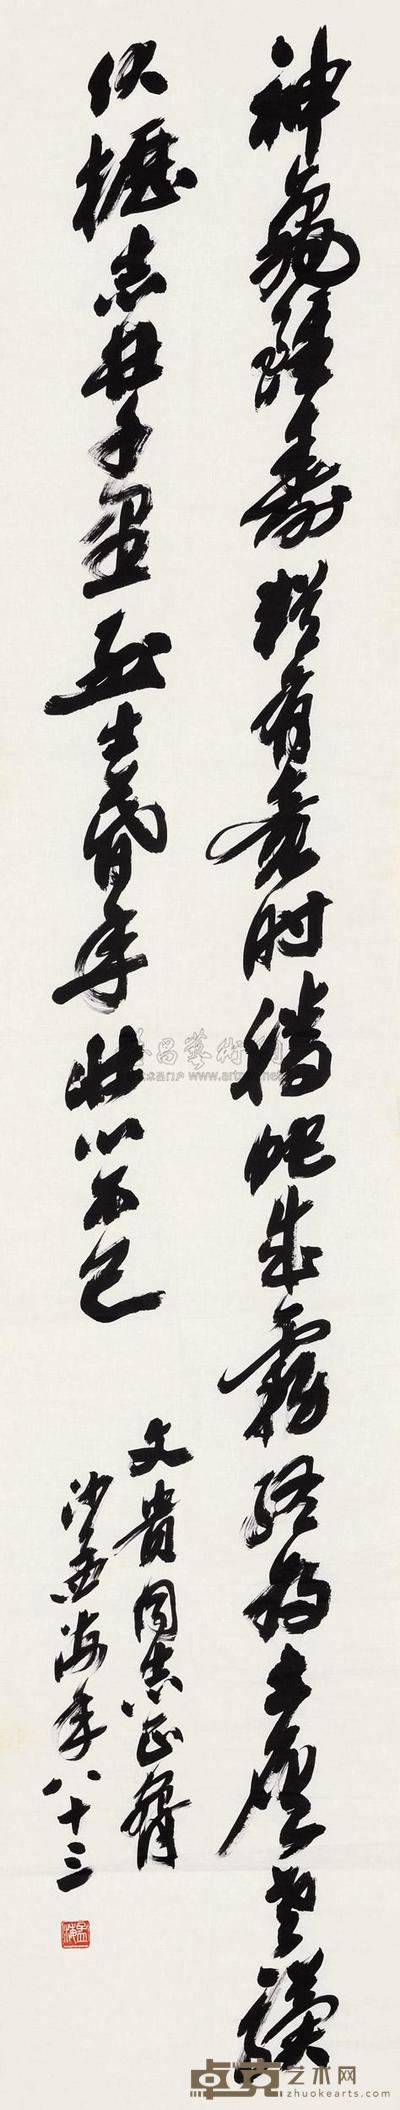 神龟虽寿犹有竟时腾蛇乘雾终为土灰老骥
伏枥志在千里烈士暮年壮心不已
文贵同志正腕
沙孟海年八十三
孟海
卓克艺术网
zhuokearts.com